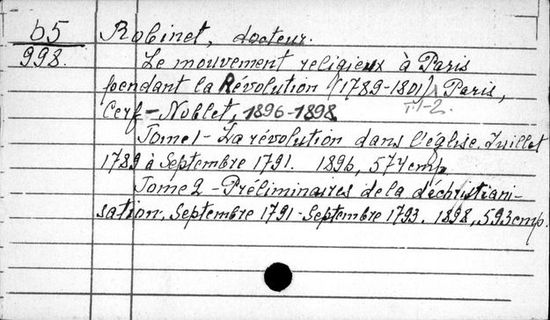 b5
998.
Robinet, docteur.
Le mouvement religieux à Paris
pendant la Révolution (1789-1801) Paris,
T.1-2.
Cerf-Noblet, 1896-1898
Tome 1- La révolution dans l'église. Juillet
1789 à Septembre 1791. 1896, 574 cmp
Tome 2 - Préliminaires de la déchristiani-
sation. Septembre 1791-Septembre 1793. 1898, 593 cmp.